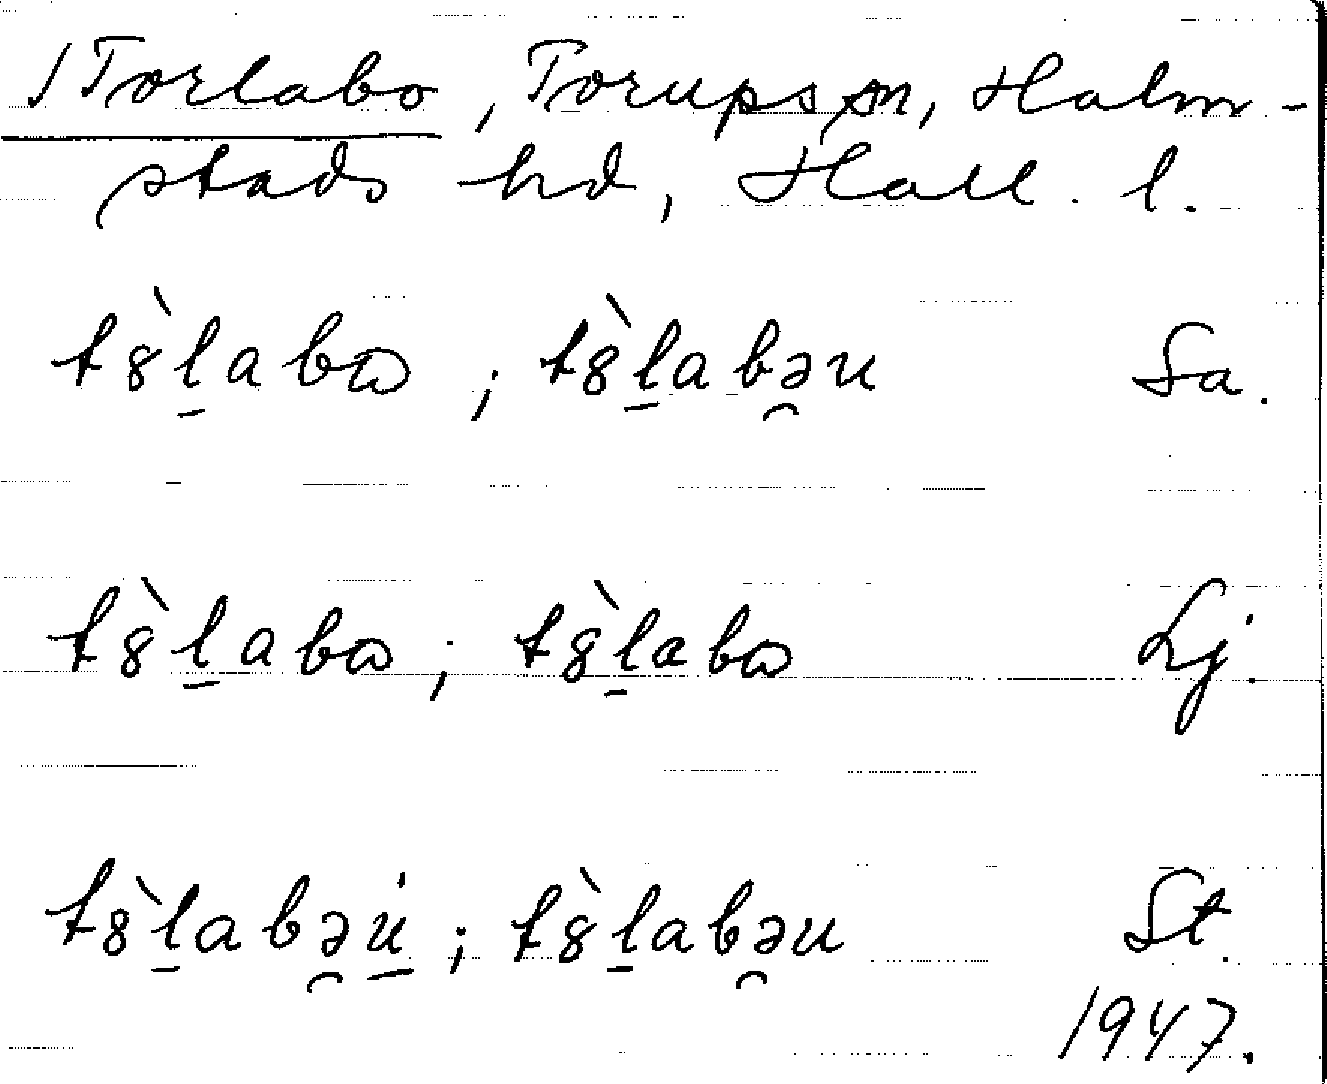 /Torlabo, Torups sn, Halm-
stads hd, Hall. l.
t8̀l̠abɷ ; t8̀l̠abə̯u Sa.
t8̀l̠abɷ ; t8̀l̠abɷ Lj.
t8̀l̠abə̯u̠̍ ; t8̀l̠abə̯u St.
1947.